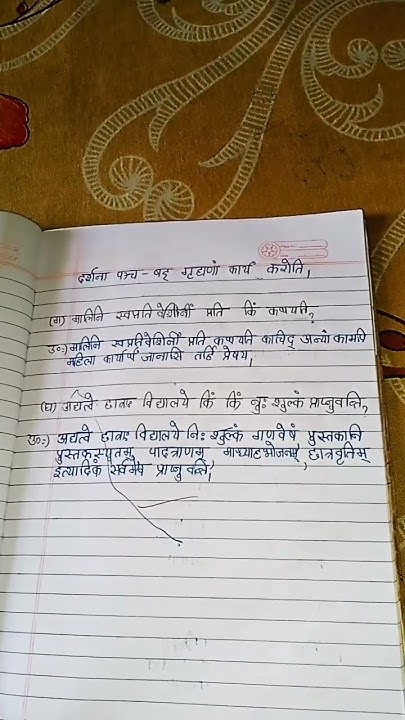 दर्शना पञ्च - षड् गृहाणां कार्यं करोति,
(ग) मालिनि स्वप्रतिवेशिनीं प्रति किं कथयति?
उ०:) मालिनि स्वप्रतिवेशिनीं प्रति कथयति काचिद् अन्यां कामपि
महिला कार्यार्थं जानासि तर्हि प्रेषय,
(घ) अद्यत्वे छात्राः विद्यालये किं किं नुः शुल्कं प्राप्नुवन्ति,
उ०:) अद्यत्वे छात्राः विद्यालये निः शुल्कं गणवेषं पुस्तकानि
पुस्तकस्यूतम् पादत्राणम् माध्याह्नभोजनम्, छात्रवृतिम्
इत्यादिकं सर्वमेव प्राप्नुवन्ति,